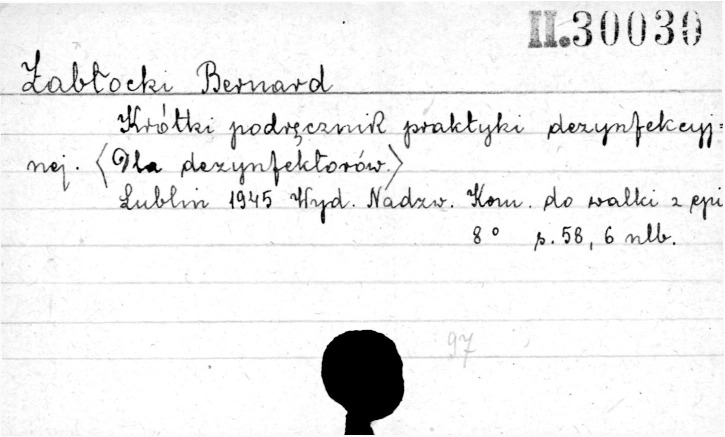 II.30030
Zabłocki Bernard
Krótki podręcznik praktyki dezynfekcyj=
nej. <Dla dezynfektorów.>
Lublin 1945 Wyd. Nadzw. Kom. do walki z epi
8° s. 58, 6 nlb.
97